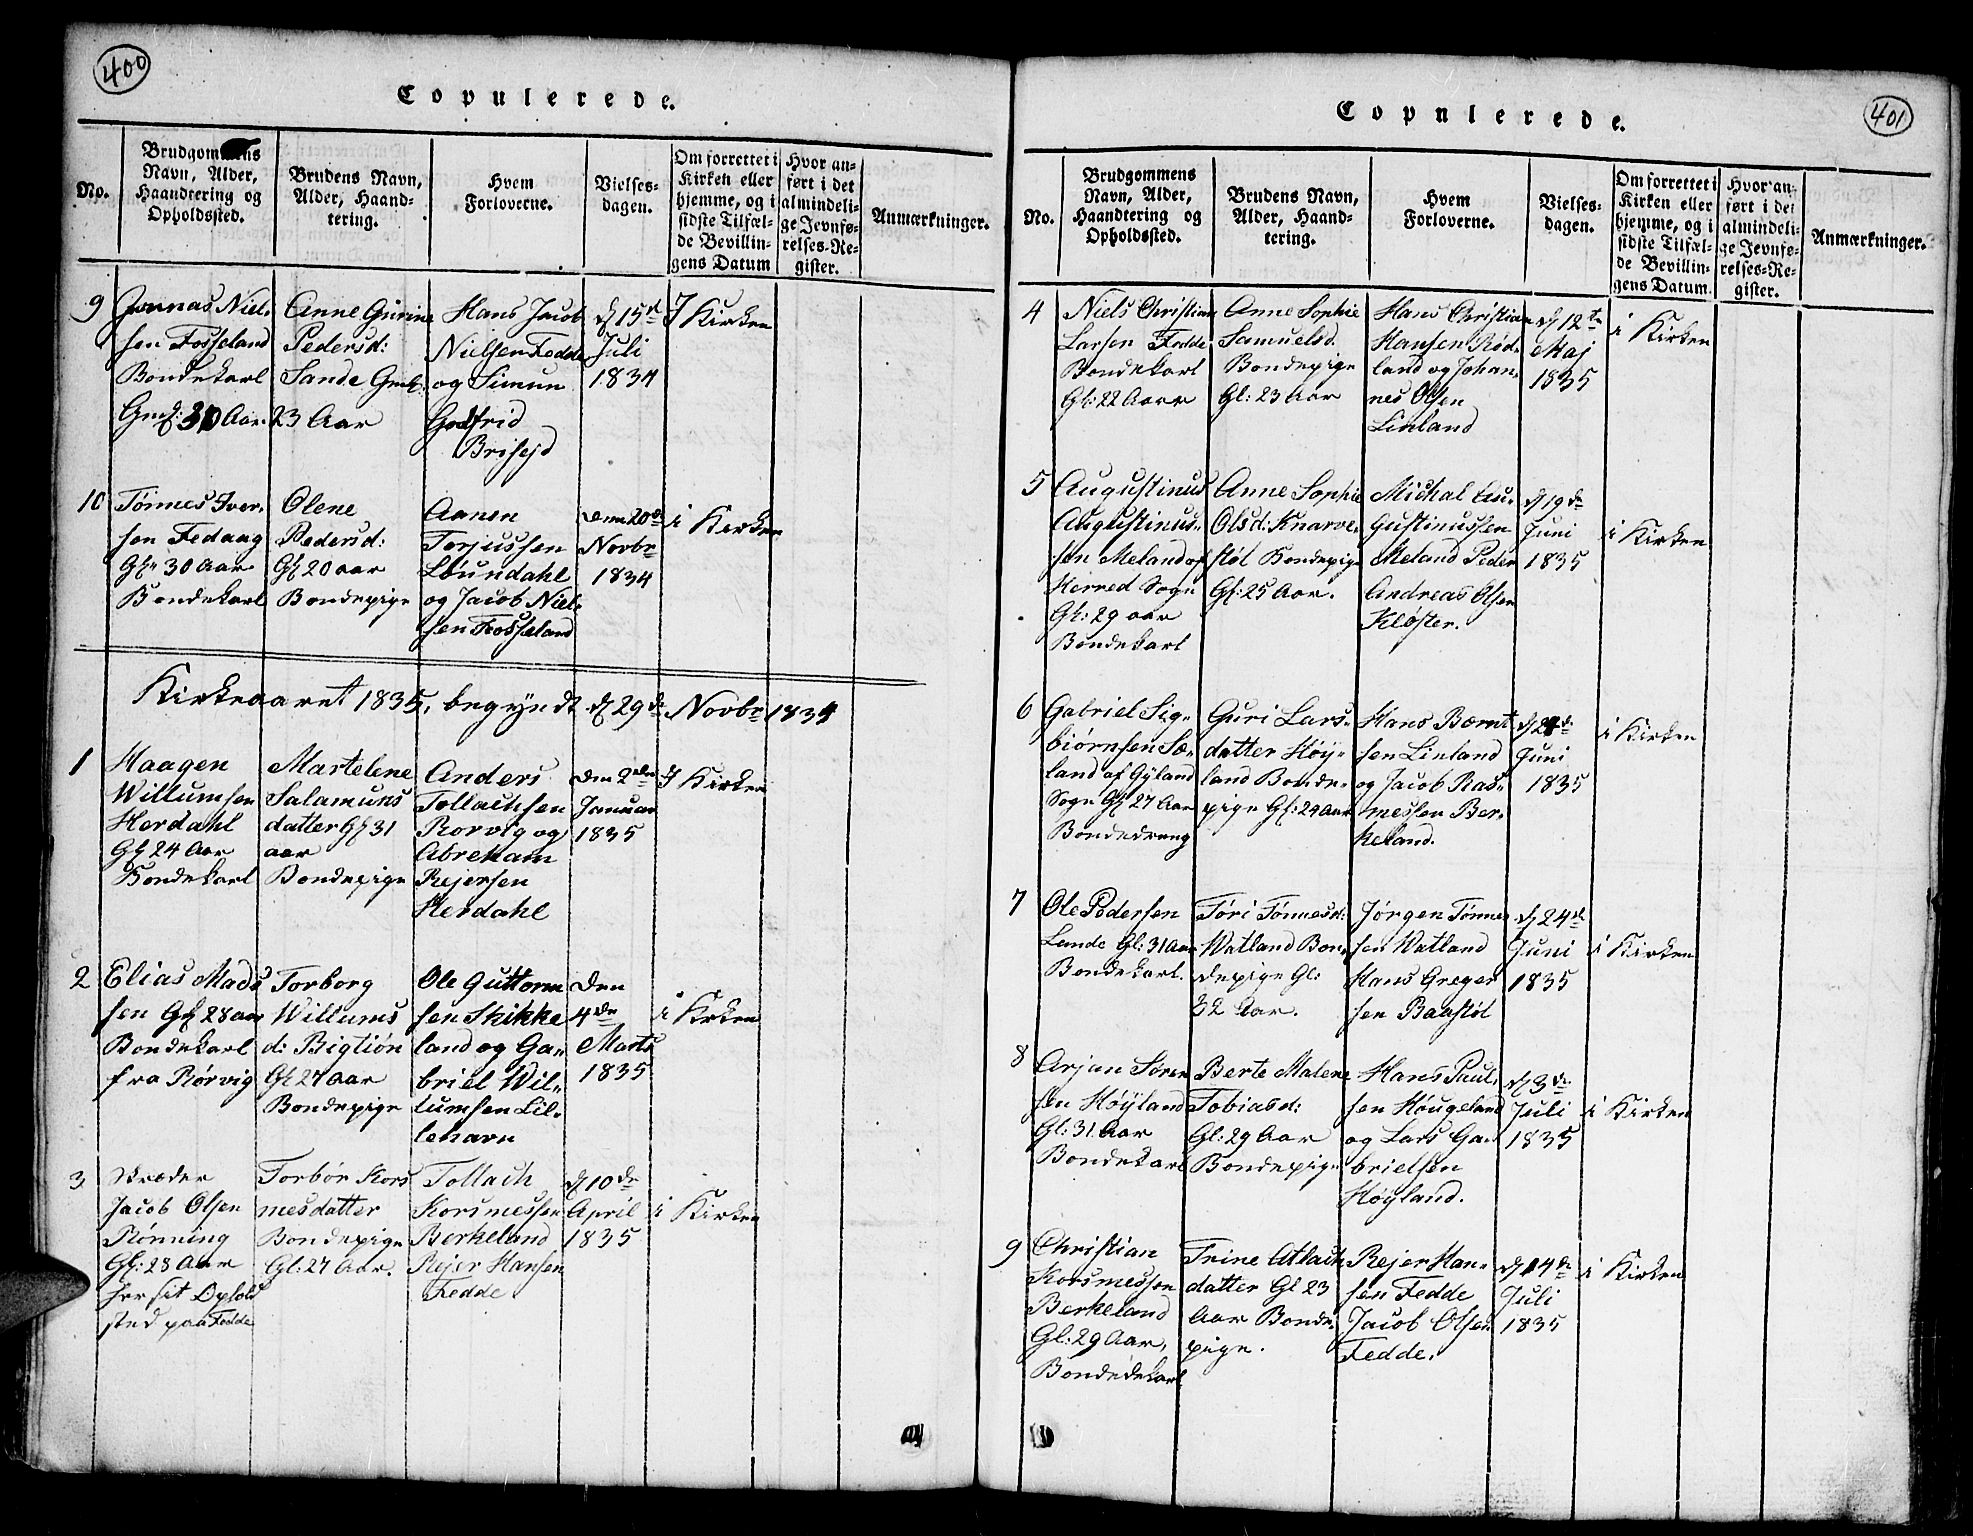 400
Copulerede.
No.
Brudgommens
Navn, Alder,
Haandtering og
Opholdssted.
Brudens Navn,
Alder, Haand-
tering.
Hvem
Forloverne.
Vielses-
dagen.
Om forrettet i
Kirken eller
hjemme, og i
sidste Tilfæl-
de Bevillin-
gens Datum
Hvor an-
ført i det
almindeli-
ge Jevnfø-
relses-Re-
gister.
Anmærkninger.
9
Jonnas Niel-
sen Fosseland
Bondekarl
Gml: 30 Aar
Anne Gurine
Pedersd:
Sande Gml:
23 Aar
Hans Jacob
Nielsen Fedde
og Simun
Godtfrid
Brisejd
d 15de
Juli
1834
I Kirken
10
Tönnes Iver-
sen Fedaag
Gl: 30 Aar
Bondekarl
Olene
Pedersd:
Gl 20 aar
Bondepige
Aanen
Torjussen
Löundahl
og Jacob Niel-
sen Fosseland
den 20de
Novbr
1834
i Kirken
Kirkeaaret 1835, begyndt d 29de Novbr 1834
1
Haagen
Willumsen
Herdahl
Gl 24 Aar
Bondekarl
Martelene
Salamuns
datter Gl 31
aar
Bondepige
Anders
Tollachsen
Rorvig og
Abreham
Rejersen
Herdahl
den 2den
Januar
1835
I Kirken
2
Elias Mads
sen Gl 28 aar
Bondekarl
fra Rörvig
Torborg
Willums
d: Bigtiön
Gl 27 Aar
Bondepige
Ole Guttorm
sen Skikke
land og Ga-
briel Wil-
lumsen Lil-
lehavn
den
4de
Marts
1835
i Kirken
3
Skræder
Jacob Olsen
Rönning
Gl: 28 Aar
har sit Ophold
sted paa Fedde
Torbör Kors
mesdatter
Bondepige
Gl: 27 Aar.
Tollach
Korsmessen
Berkeland
Rejer Hansen
Fedde
d 10de
April
1835
i Kirken
401
Copulerede.
No.
Brudgommens
Navn, Alder,
Haandtering og
Opholdssted.
Brudens Navn,
Alder, Haand-
tering.
Hvem
Forloverne.
Vielses-
dagen.
Om forrettet i
Kirken eller
hjemme, og i
sidste Tilfæl-
de Bevillin-
gens Datum.
Hvor an-
ført i det
almindeli-
ge Jevnfø-
relses-Re-
gister.
Anmærkninger.
4
Niels Christian
Larsen Fedde
Bondekarl
Gl: 22 Aar
Anne Sophie
Samuelsd.
Bondepige
Gl: 23 Aar
Hans Christian
Hansen Röd-
land og Johan-
nes Olsen
Linland
d 12te
Maj
1835
i Kirken
5
Augustinus
Augustinus-
sen Meland af
Herred Sogn
Gl: 29 aar
Bondekarl
Anne Sophie
Olsd: Knarve-
stöl Bondepige
Gl: 25 Aar.
Michal Au-
gustinussen
Meland Peder
Andreas Olsen
Klöster.
d 19de
Juni
1835
i Kirken
6
Gabriel Sig-
biörnsen Sæ-
land af Gyland
Sogn Gl 27 Aar
Bondedreng
Guri Lars-
datter Höy-
land Bonde-
pige Gl: 24 Aar
Hans Bærnt
sen Linland
og Jacob Ras-
messen Ber-
keland.
Juni
1835
i Kirken
7
Ole Pedersen
Lande Gl: 31 Aar
Bondekarl.
Töri Tönnesd:
Watland Bon-
depige Gl:
32 Aar.
Jörgen Tönne
sen Watland
Hans Greger
sen Baastöl
d 24de
Juni
1835
i Kirken
8
Arjan Sören
sen Höyland
Gl: 31 Aar
Bondekarl
Berte Malene
Tobiasd:
Gl: 29 Aar
Bondepige
Hans Paul-
sen Hougeland
og Lars Ga-
brielsen
Höyland.
d 3de
Juli
1835
i Kirken
9
Christian
Korsmessen
Berkeland
Gl: 29 Aar,
Bondekarl
Trine Atlach
datter Gl 23
Aar Bonde-
pige.
Rejer Han-
sen Fedde
Jacob Olsen
Fedde.
d 14de
Juli
1835
i Kirken